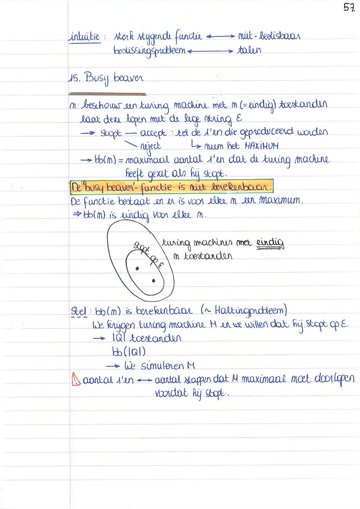 57
intuïtie : sterk stijgende functie ↔ niet-beslisbaar
beslissingsprobleem ↔ talen
15. Busy beaver
n: beschouw een turing machine met n (= eindig) toestanden
laat deze lopen met de lege string ε
→ stopt — accept : tel de 1'en die geproduceerd worden
reject ↳ neem het MAXIMUM
→ bb(n) = maximaal aantal 1'en dat de turing machine
heeft gezet als hij stopt.
De "busy beaver"-functie is niet berekenbaar.
De functie bestaat en er is voor elke n een maximum.
⇒ bb(n) is eindig voor elke n.
stopt op ε
turing machines met eindig
n toestanden
Stel : bb(n) is berekenbaar (~ Haltingprobleem)
We krijgen turing machine M en we willen dat hij stopt op ε.
→ |Q| toestanden
bb(|Q|)
→ We simuleren M
⚠ aantal 1'en ↔ aantal stappen dat M maximaal moet doorlopen
voordat hij stopt.